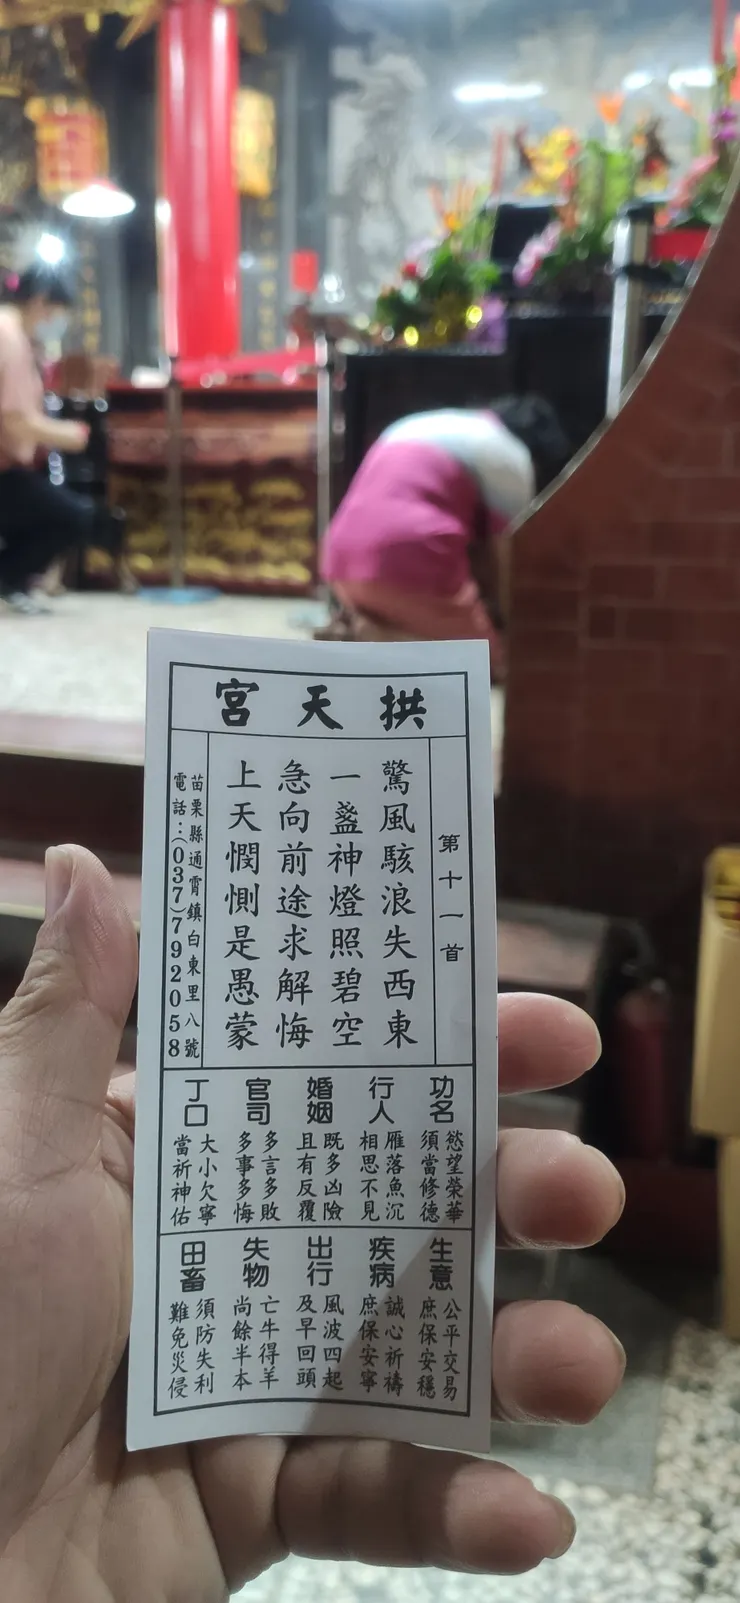 拱天宮
第十一首
驚風駭浪失西東
一盞神燈照碧空
急向前途求解悔
上天憫惻是愚蒙
苗栗縣通霄鎮白東里八號
電話:(037)792058
功名
慾望榮華
須當修德
行人
雁落魚沉
相思不見
婚姻
既多凶險
且有反覆
官司
多言多敗
多事多悔
丁口
大小欠寧
當祈神佑
生意
公平交易
庶保安穩
疾病
誠心祈禱
庶保安寧
出行
風波四起
及早回頭
失物
亡牛得羊
尚餘半本
田畜
須防失利
難免災侵